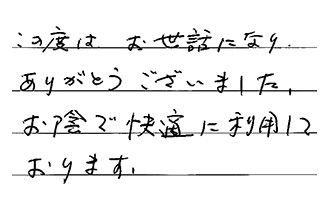 この度は お世話になり.
ありがとうございました.
お陰で快適に利用して
おります.